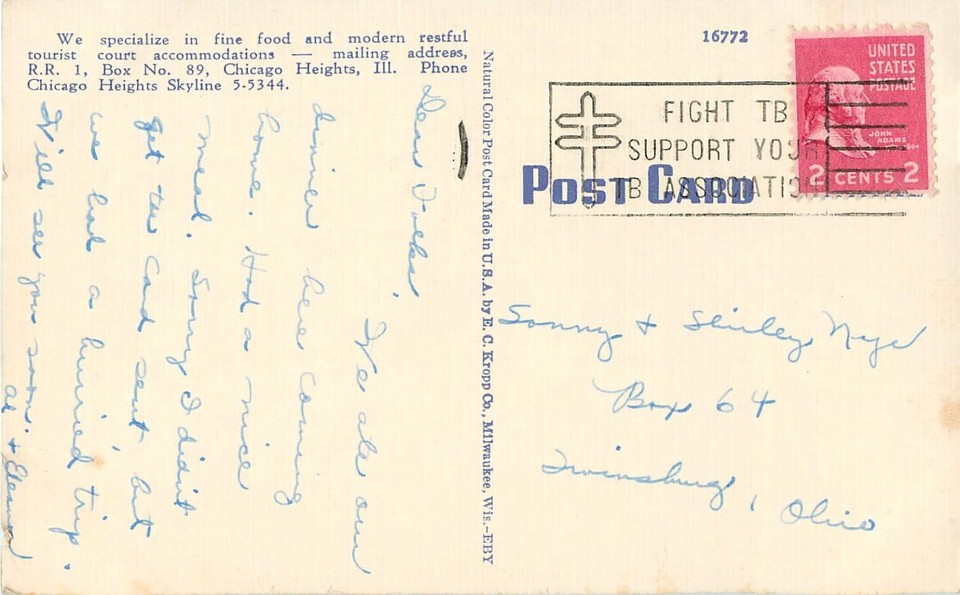 We specialize in fine food and modern restful
tourist court accommodations — mailing address,
R.R. 1, Box No. 89, Chicago Heights, Ill. Phone
Chicago Heights Skyline 5-5344.
Dear Folks,
We ate our
dinner here coming
home. Had a nice
meal. Sorry I didn't
get the card sent, but
we had a hurried trip.
We'll see you soon.
Al + Elenor
Natural Color Post Card Made in U.S.A. by E. C. Kropp Co., Milwaukee, Wis.-EBY
16772
UNITED
STATES
POSTAGE
JOHN
ADAMS
2 CENTS 2
FIGHT TB
SUPPORT YOUR
TB ASSOCIATION
POST CARD
Sonny + Shirley Nye
Box 64
Twinsburg, Ohio